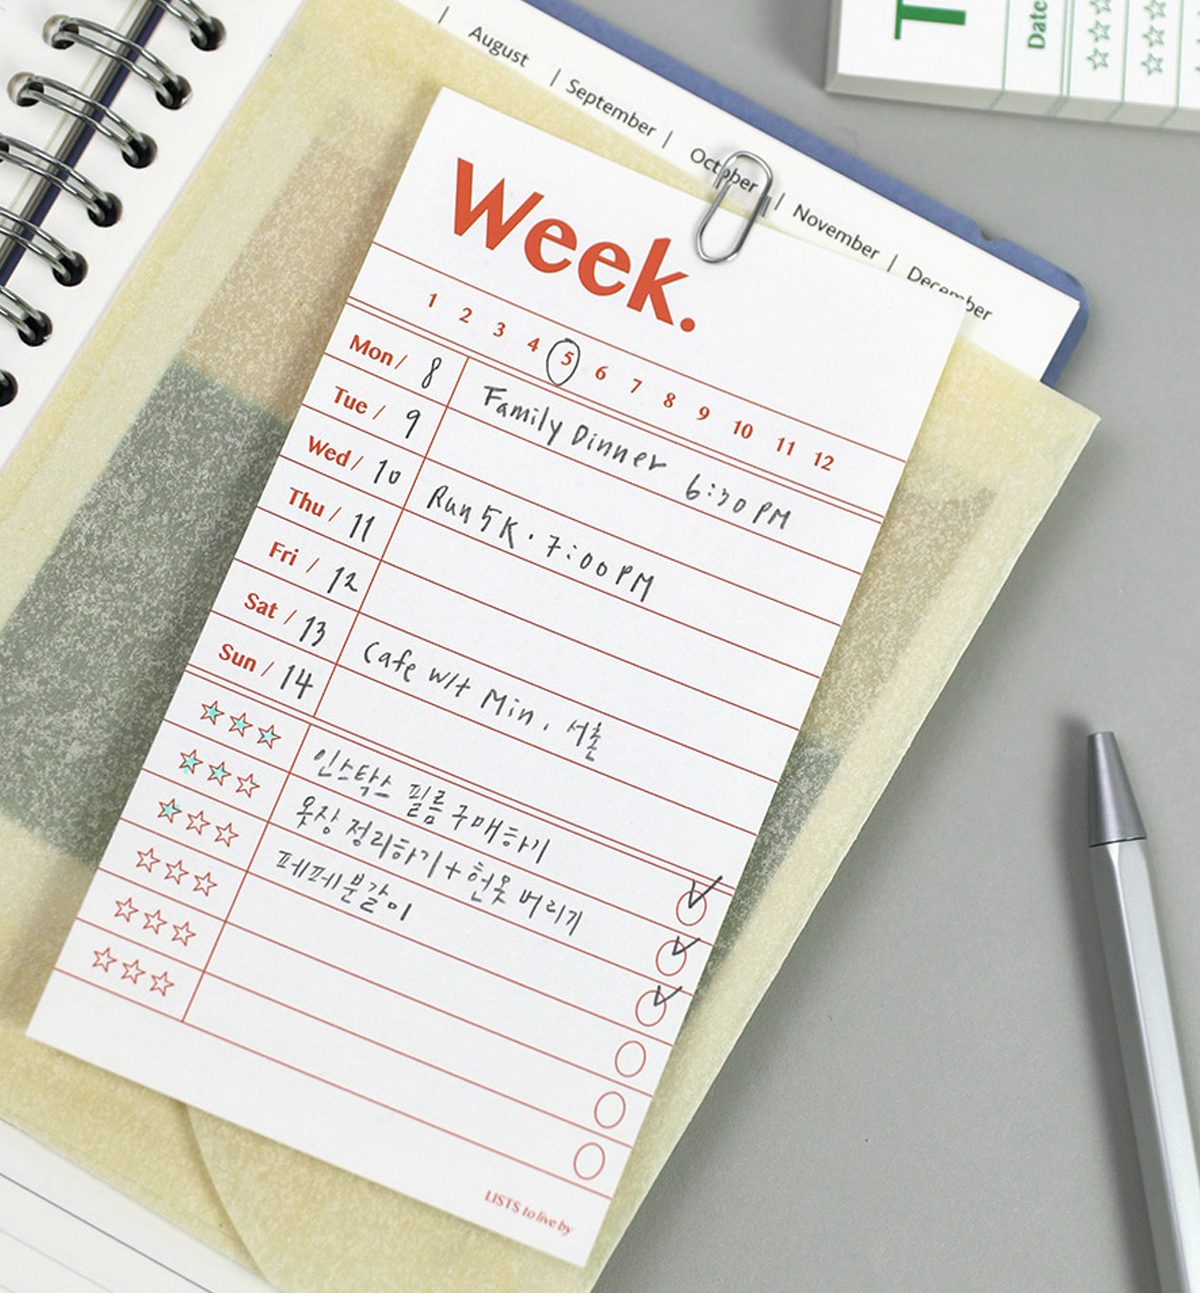 August | September | October | November | December
T
Date
Week.
1 2 3 4 5 6 7 8 9 10 11 12
Mon / 8 Family Dinner 6:30 PM
Tue / 9
Wed / 10 Run 5K . 7:00 PM
Thu / 11
Fri / 12
Sat / 13 Cafe w/t Min , 서촌
Sun / 14
인스탁스 필름 구매하기
옷장 정리하기 + 헌옷 버리기
페페분갈이
LISTS to live by